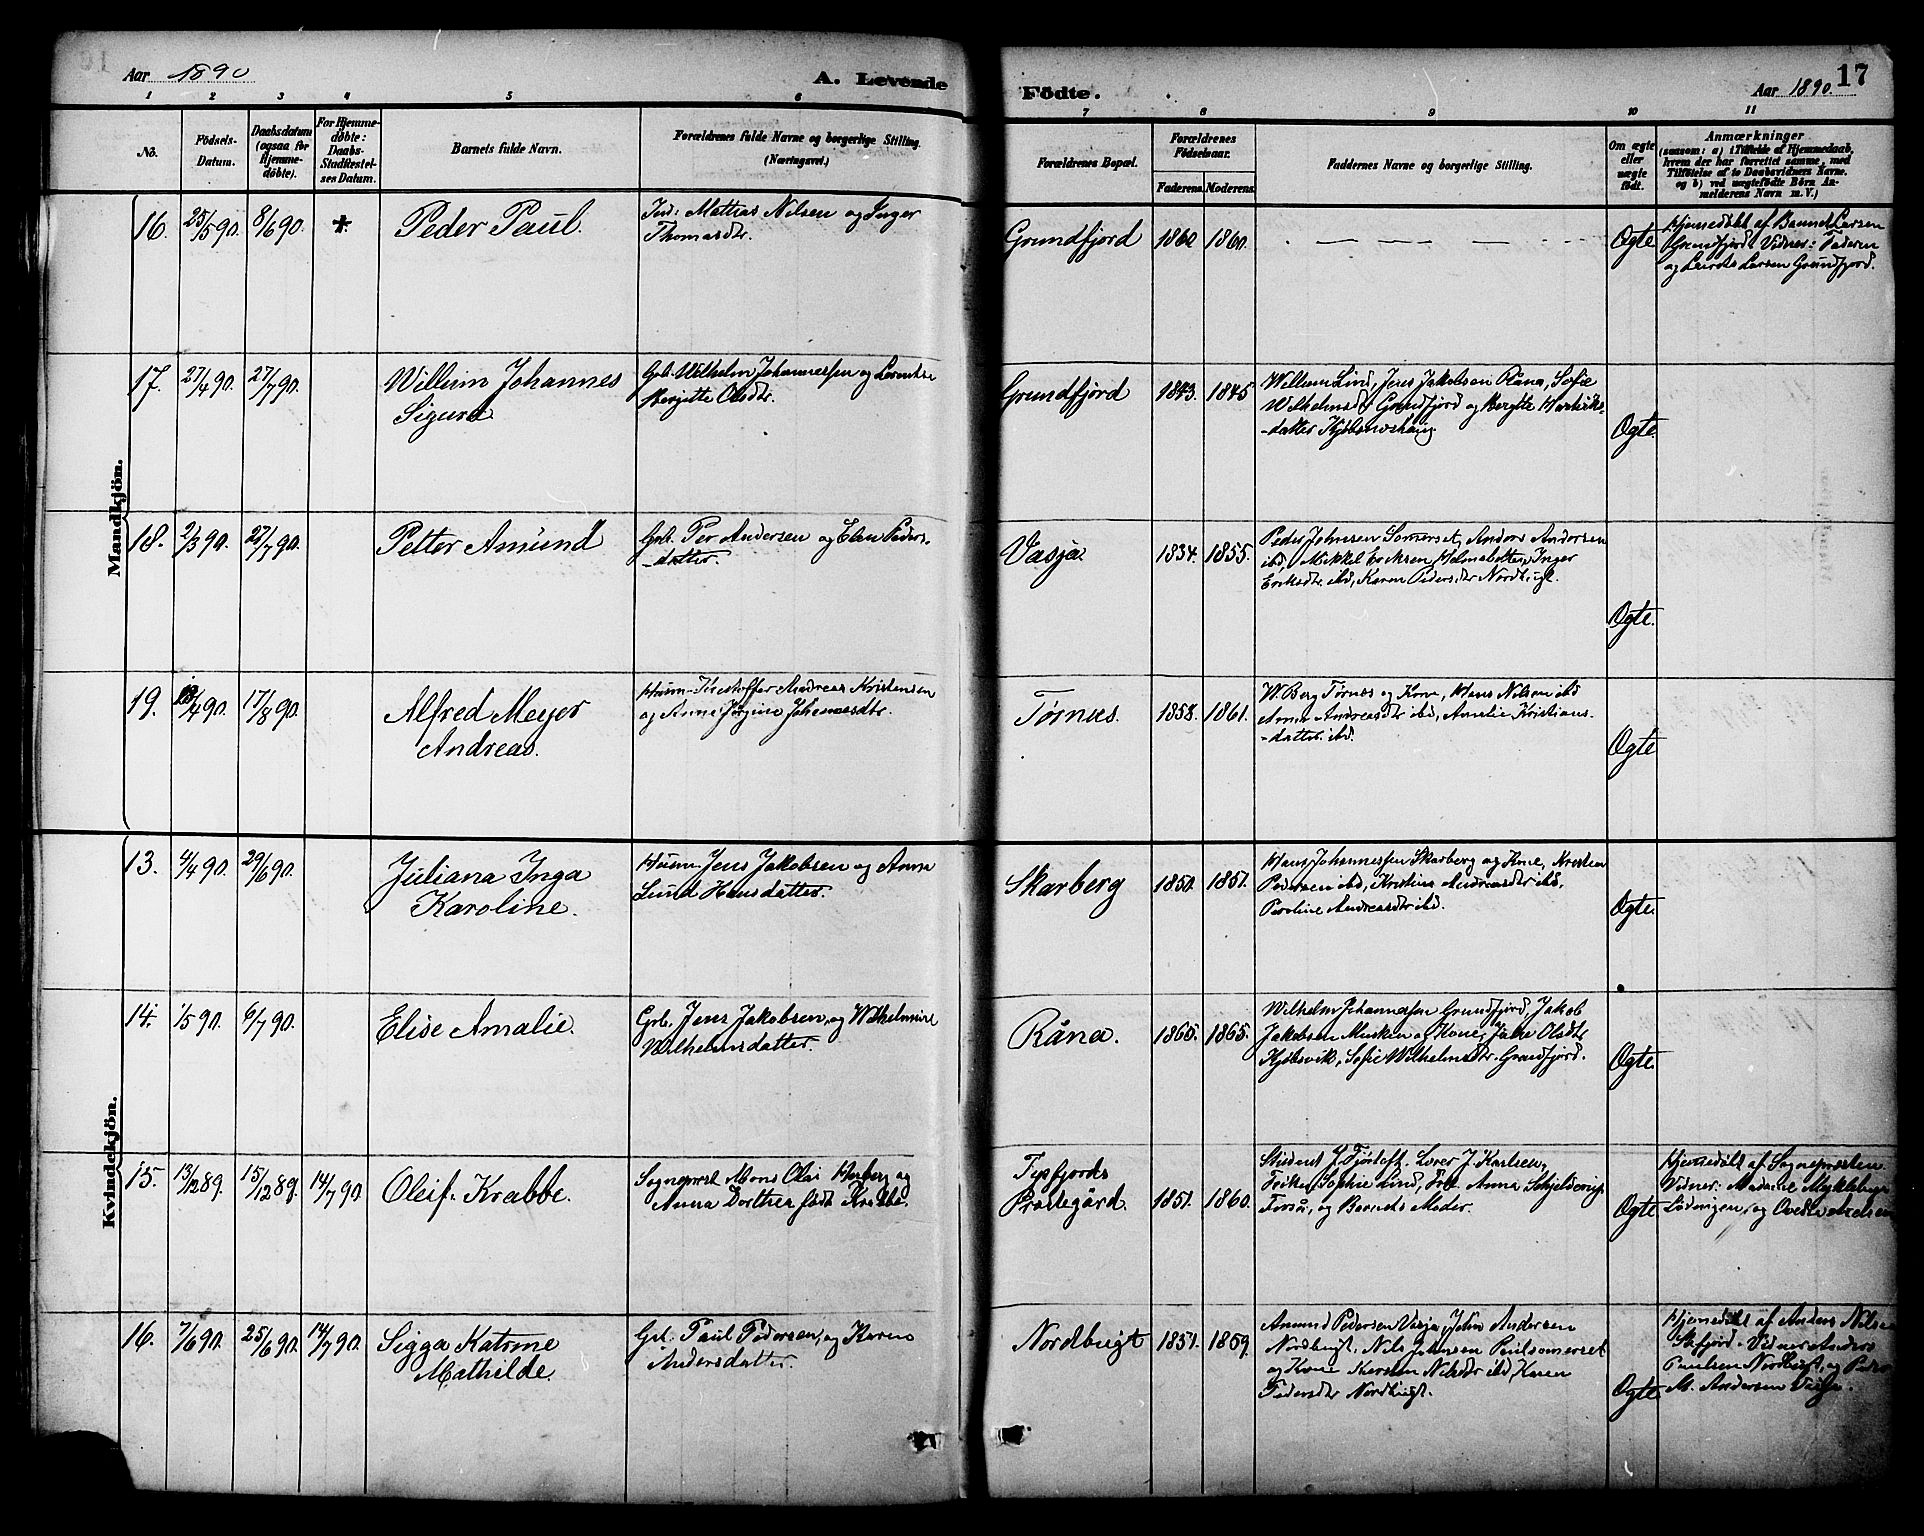 Aar 1890
A. Levende
Födte.
Aar 1890.
17
1 2 3 4 5 6 7 8 9 10 11
No.
Födsels-
Datum.
Daabsdatum
(ogsaa for
Hjemme-
döbte).
For Hjemme-
döbte:
Daabs-
Stadfæstel-
ses Datum.
Barnets fulde Navn.
Forældrenes fulde Navne og borgerlige Stilling.
(Næringsvei.)
Forældrenes Bopæl.
Forældrenes
Födselsaar.
Faderens. Moderens.
Faddernes Navne og borgerlige Stilling.
Om ægte
eller
uægte
födt.
Anmærkninger
(saasom: a) i Tilfælde af Hjemmedaab,
hvem der har forrettet samme, med
Tilföielse af to Daabsvidners Navne.
og b) ved uægtefödte Börn An-
melderens Navn m. V.)
Mandkjön.
16. 25/5 90. 8/6 90. +.
Peder Paul.
Ind: Mathias Nilsen og Inger
Thomasdtr.
Grundfjord 1860 1860. — — — —
Ægte
Hjemedøbt af Larsen
Grundfjord. Vidner: Faderen
og Larsen Grundfjord.
17. 27/4 90. 27/7 90.
Willum Johannes
Sigurd
Grb. Wilhelm Johannessen og Lorentse
Bergitte Olsdtr.
Grundfjord 1843. 1845
Willum Lind, Jens Jakobsen Råna, Sofie
Wilhelmsd. Grundfjord og Bergitte
-datter
Ægte.
18. 2/3 90. 27/7 90.
Petter Amund
Grb. Per Andersen og Elen Peders-
-datter.
Vasja 1834. 1855.
Peder Johnsen Somerset, Anders Andersen
ibd, Mikkel Eriksen, Inger
Eriksdtr ibd, Karen Pedersdtr Nordbugt.
Ægte.
19. /4 90. 17/8 90.
Alfred Meyer
Andreas.
Husm. Kristoffer Andreas Kristensen
og Anne Jørgine Johannesdtr.
Tørnes. 1858. 1861.
W. Berg Tørnes og Kone, Hans Nilsen ibd
Anne Andreasdtr ibd, Amalie Kristians-
-datter ibd.
Ægte
Kvindekjön.
13. 4/4 90. 29/6 90.
Juliana Inga
Karoline.
Husm. Jens Jakobsen og Anne
Lund Hansdatter.
Skarberg 1850. 1851.
Hans Johannessen Skarberg og Kone, Kristian
Pedersen ibd, Kristine Andreasdtr ibd,
Peroline Andreasdtr ibd.
Ægte.
14. 1/5 90. 6/7 90.
Elise Amalie.
Grb. Jens Jakobsen, og Wilhelmine
Wilhelmsdatter.
Råna. 1860. 1865.
Wilhelm Johannesen Grundfjord, Jakob
Jakobsen Musken og Kone, Olsdtr
Kjøbsvik, Sofie Wilhelmsdtr. Grundfjord.
Ægte.
15. 13/12 89. 15/12 89. 14/7 90.
Oleif Krabbe.
Sogneprest Mons Olai og
Anna Dorthea født Krabbe.
Tysfjords
Præstegård. 1851. 1860.
Student J. Tjøstoft. Lærer J. Karlsen,
Frøken Sophie Lind, Frk. Anna Schjelderup
Forså, og Barnets Moder.
Ægte
Hjemedøbt af Sognepresten
Vidner: Madame Myklebust
Lødingen, og
16. 7/6 90. 25/6 90. 14/7 90.
Sigga Katrine
Mathilde.
Grb. Paul Pedersen, og Karen
Andersdatter.
Nordbugt 1851. 1859.
Amund Pedersen Vasja, John Andersen
Nordbugt, Nils Johnsen
og Kone Karen Nilsdtr ibd, Karen
Pedersdtr Nordbugt.
Ægte
Hjemedøbt af Anders Nilsen
Vidner Anders
Paulsen Nordbugt, og Peder
M. Andersen